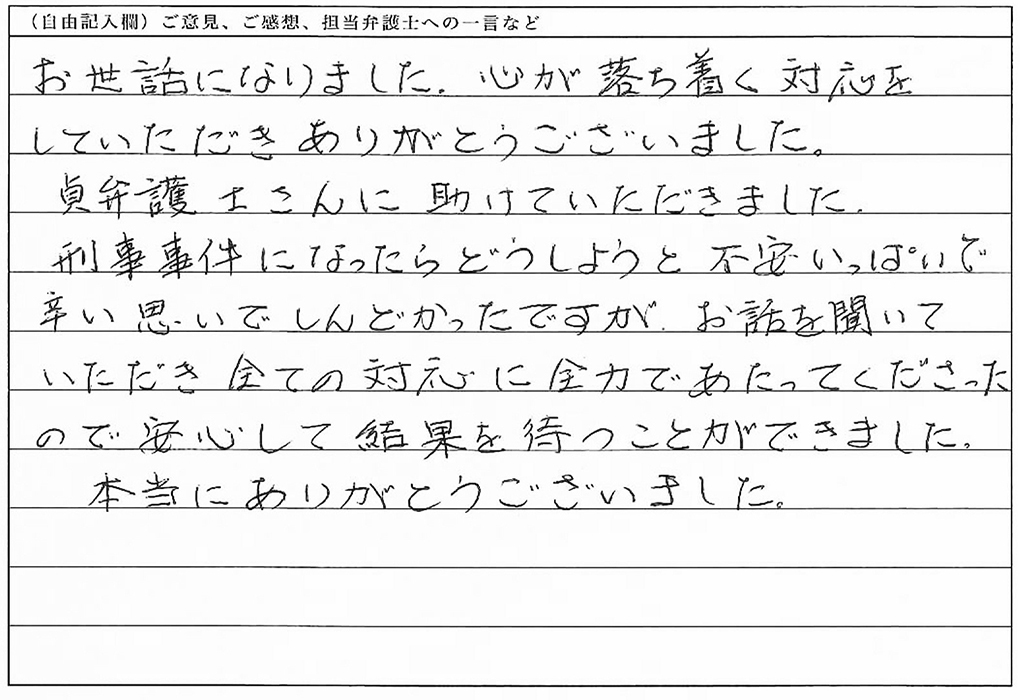 (自由記入欄)ご意見、ご感想、担当弁護士への一言など
お世話になりました. 心が落ち着く対応を
していただきありがとうございました。
貞弁護士さんに助けていただきました.
刑事事件になったらどうしようと不安いっぱいで
辛い思いでしんどかったですが. お話を聞いて
いただき全ての対応に全力であたってくださった
ので安心して結果を待つことができました.
本当にありがとうございました。